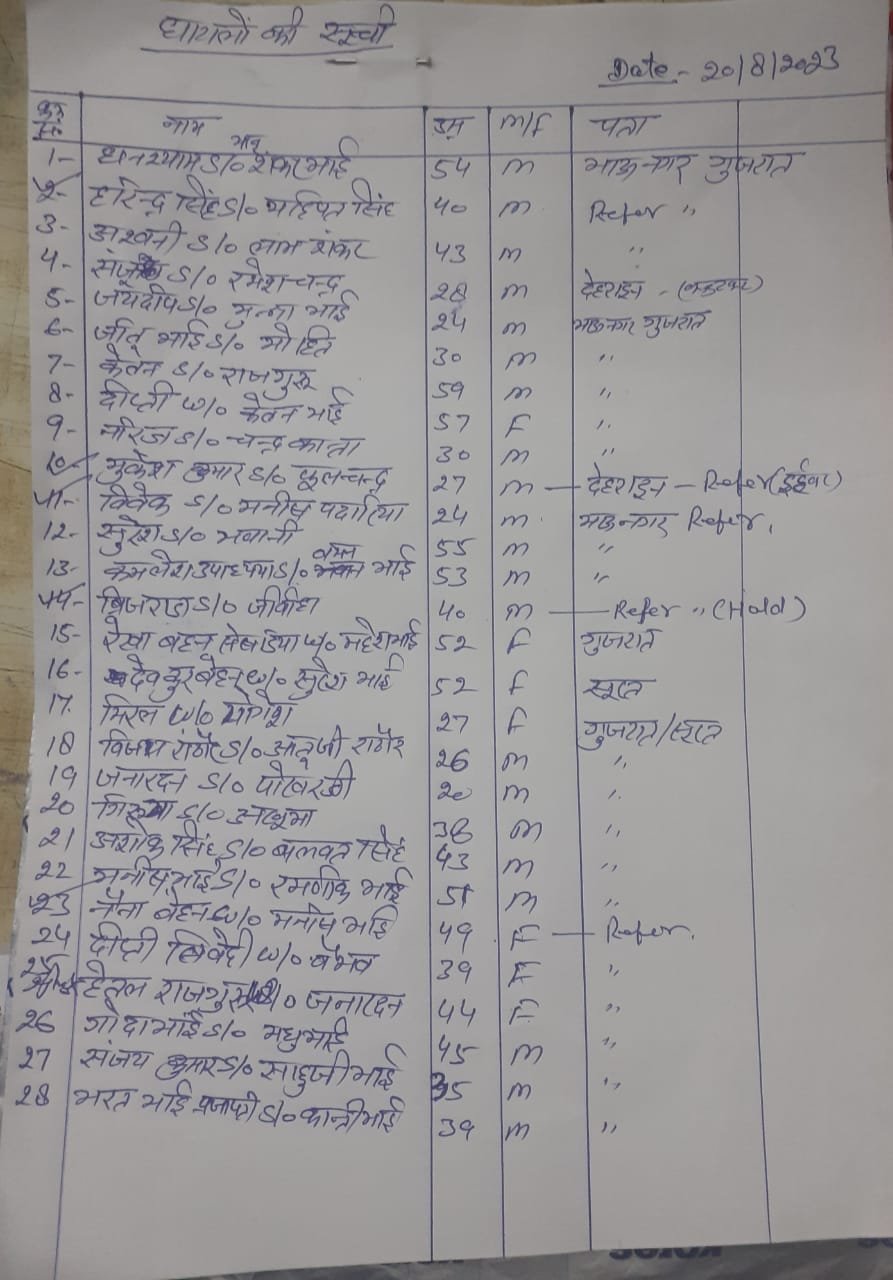 घायलों की सूची
Date - 20/8/2023
क्र सं० नाम उम्र M/F पता
1- घनश्याम S/o शंकर भाई 54 M भावनगर गुजरात
2- हरिन्द्र सिंह S/o महिपत सिंह 40 M Refer "
3- अश्वनी S/o लाभ शंकर 43 M "
4- S/o रमेश चन्द्र 28 M देहरादून -
5- जयदीप S/o मुन्ना भाई 24 M भावनगर गुजरात
6- जीतू भाई S/o मोहित 30 M "
7- केतन S/o राजगुरू 59 M "
8- दीप्ती W/o केतन भाई 57 F "
9- नीरज S/o चन्द्र कान्ता 30 M "
10- मुकेश कुमार S/o फूलचन्द्र 27 M — देहरादून - Refer
11- विवेक S/o मनीष 24 M भावनगर Refer,
12- सुरेश S/o भवानी 55 M "
13- कमलेश उपाध्याय S/o भाई 53 M "
14- ब्रिजराज S/o 40 M — Refer " (Hold)
15- रेखा बहन W/o महेश भाई 52 F गुजरात
16- बेहन W/o सुरेश भाई 52 F सूरत
17. मित्तल W/o योगेश 27 F गुजरात/सूरत
18 विजय राठौर S/o राठौर 26 M "
19 जनारदन S/o 20 M "
20 S/o 38 M "
21 अशोक सिंह S/o बलवत सिंह 43 M "
22 मनीष भाई S/o रमणीक भाई 51 M "
23 नैना बेहन W/o मनीष भाई 49 F — Refer,
24 दीप्ती त्रिवेदी W/o वैभव 39 F "
25 हेतल राजगुरू W/o जनारदन 44 F "
26 गोदाभाई S/o मधुभाई 45 M "
27 संजय कुमार S/o भाई 35 M "
28 भरत भाई प्रजापती S/o कान्तीभाई 39 M "